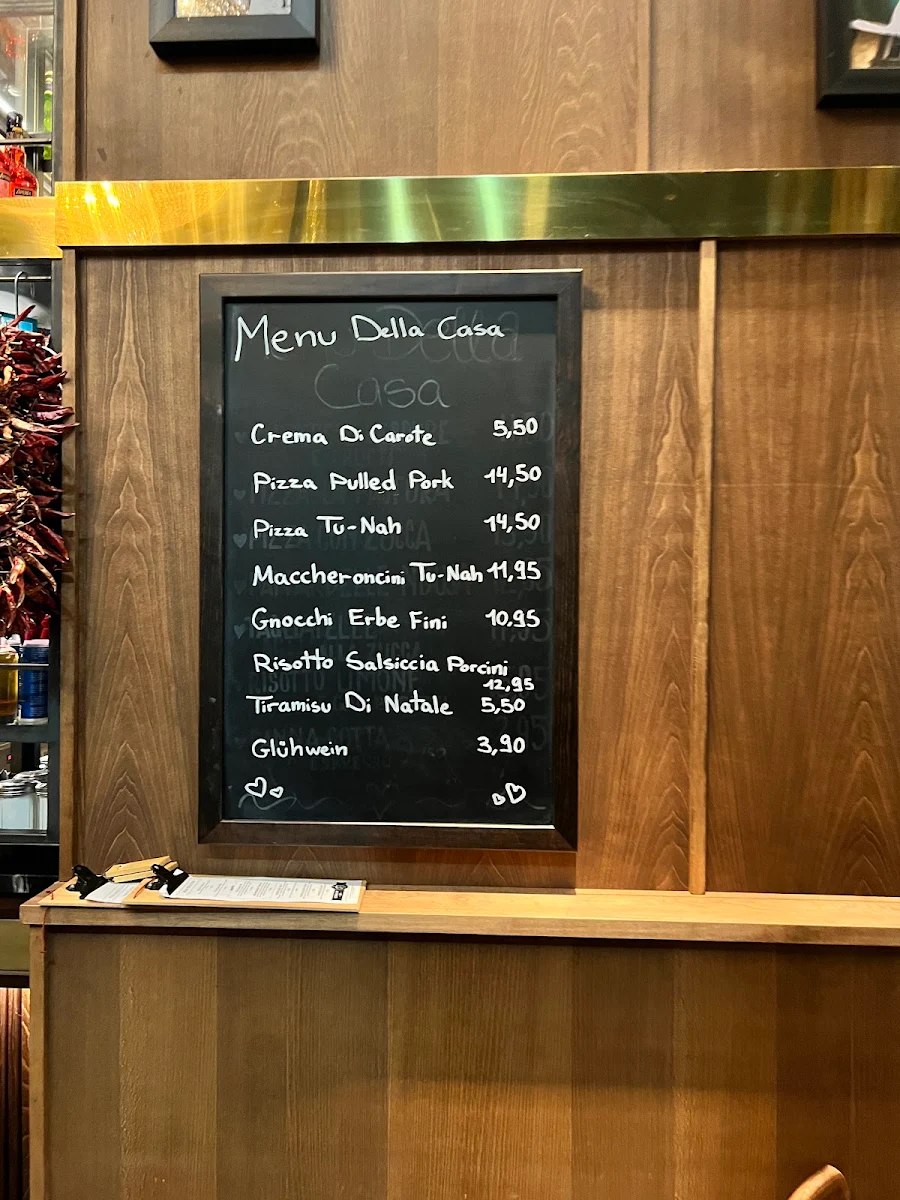 Menu Della Casa
Casa
Crema Di Carote 5,50
Pizza Pulled Pork 14,50
Pizza Tu-Nah 14,50
Maccheroncini Tu-Nah 11,95
Gnocchi Erbe Fini 10,95
Risotto Salsiccia Porcini
12,95
Tiramisu Di Natale 5,50
Glühwein 3,90